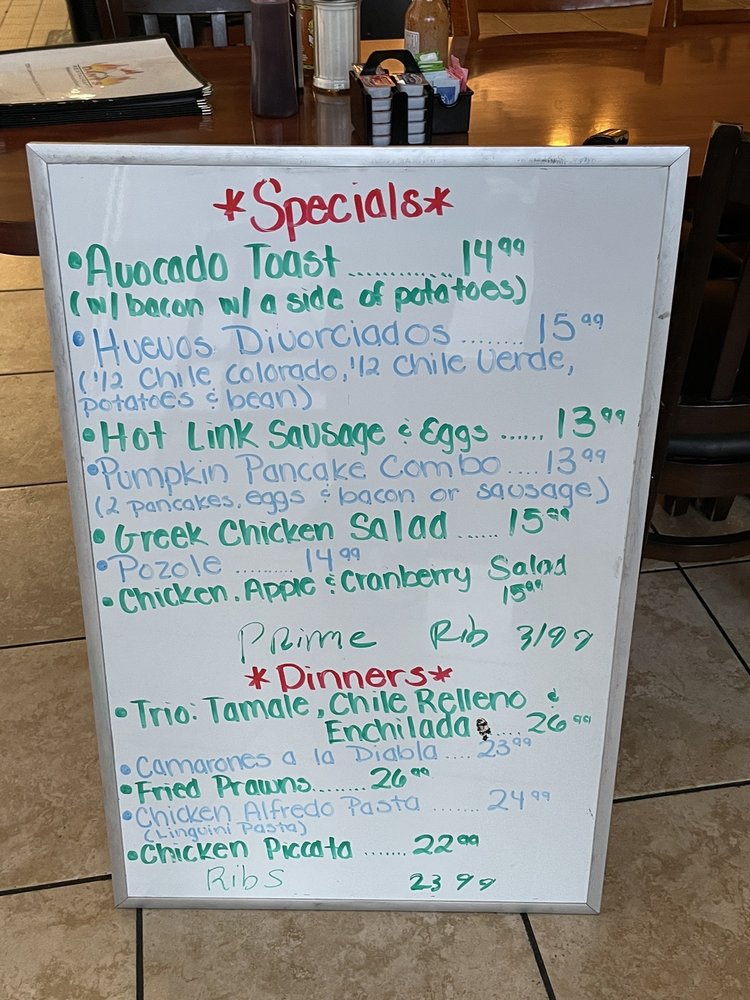 *Specials*
• Avocado Toast ............ 14 99
(w/ bacon w/ a side of potatoes)
• Huevos Divorciados ........ 15 99
(1/2 Chile Colorado, 1/2 Chile Verde,
potatoes & bean)
• Hot Link Sausage & Eggs ...... 13 99
• Pumpkin Pancake Combo .... 13 99
(2 pancakes, eggs & bacon or sausage)
• Greek Chicken Salad ...... 15 99
• Pozole ......... 14 99
• Chicken, Apple & Cranberry Salad
15 99
Prime Rib 31 99
*Dinners*
• Trio: Tamale, Chile Relleno &
Enchilada ..... 26 99
• Camarones a la Diabla .... 23 99
• Fried Prawns....... 26 99
• Chicken Alfredo Pasta ....... 24 99
(Linguini Pasta)
• Chicken Piccata ...... 22 99
Ribs 23 99